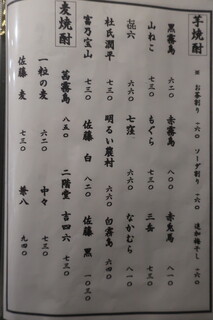 芋焼酎
※ お茶割り 一六〇 ソーダ割り 一六〇 追加梅干し 一六〇
黒霧島 六二〇 赤霧島 赤兎馬 八一〇
山ねこ 七三〇 もぐら 七三〇 三岳 七三〇
㐂六 六六〇 七窪 六六〇 なかむら 八一〇
杜氏潤平 七三〇 明るい農村 七三〇 白霧島 六四〇
富乃宝山 七三〇 佐藤 白 八二〇 佐藤 黒 一〇三〇
茜霧島 八五〇
麦焼酎
二階堂 吉四六 七三〇
一粒の麦 六二〇 中々 七三〇
佐藤 麦 七三〇 兼八 九四〇